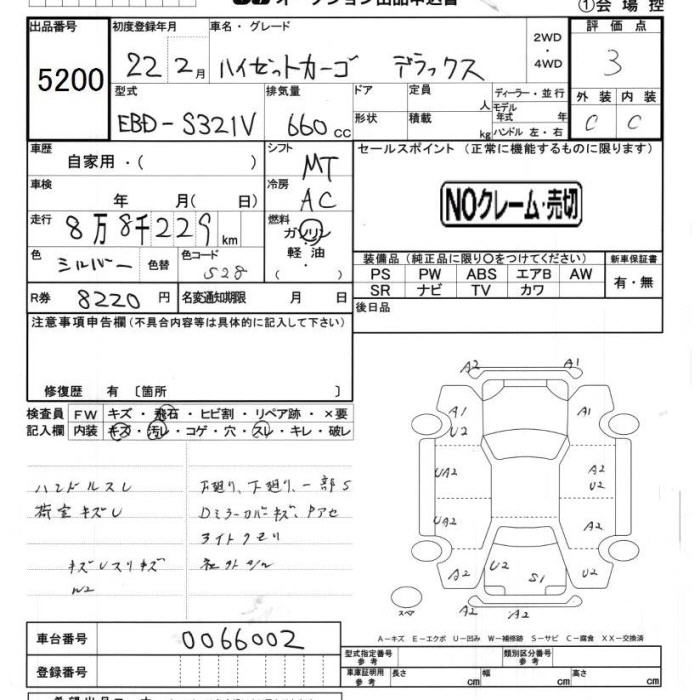 オークション出品申込書
①会場控
出品番号 5200
初度登録年月 22 2月
車名・グレード ハイゼットカーゴ デラックス
2WD・4WD
評価点 3
型式 EBD-S321V
排気量 660cc
ドア形状
定員 人
積載 kg
ディーラー・並行
モデル年式 年
ハンドル 左・右
外装 C
内装 C
車歴 自家用・( )
シフト MT
セールスポイント(正常に機能するものに限ります)
車検 年 月( 日)
冷房 AC
NOクレーム・売切
走行 8万8千229km
燃料 ガソリン 軽油 ( )
色 シルバー 色替
色コード S28
装備品(純正品に限り○をつけてください)
新車保証書
PS PW ABS エアB AW
有・無
SR ナビ TV カワ
R券 8220円
名変通知期限 月 日
後日品
注意事項申告欄(不具合内容等は具体的に記入して下さい)
修復歴 有 〔箇所 〕
検査員記入欄
FW キズ・飛石・ヒビ割・リペア跡・×要
内装 キズ・汚レ・コゲ・穴・スレ・キレ・破レ
ハンドルスレ
下廻り、一部S
荷室キズU
Dミラーカバーキズ、
キズUスリキズ
W2
A2 A1
A1 U2 A1
UA2 A2 U2
UA2 A2
A2 U2 S1 U2 A2
スペア A2 A2
車台番号 0066002
A－キズ E－エクボ U－凹み W－補修跡 S－サビ C－腐食 XX－交換済
型式指定番号 参考
類別区分番号 参考
登録番号
車庫証明用 参考 長さ cm 幅 cm 高さ cm